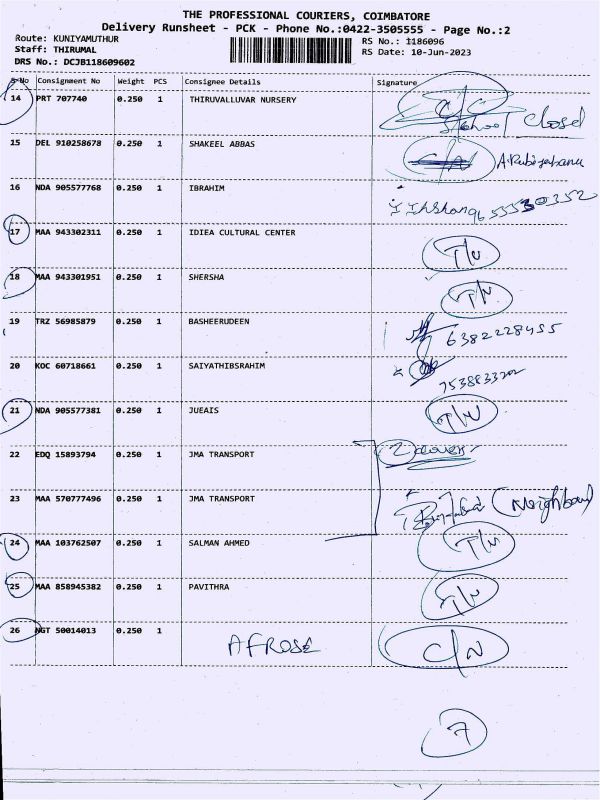 THE PROFESSIONAL COURIERS, COIMBATORE
Delivery Runsheet - PCK - Phone No.:0422-3505555 - Page No.:2
Route: KUNIYAMUTHUR
RS No.: 1186096
Staff: THIRUMAL
RS Date: 10-Jun-2023
DRS No.: DCJB118609602
S-No Consignment No Weight PCS Consignee Details Signature
14 PRT 707740 0.250 1 THIRUVALLUVAR NURSERY C/C
School Closed
15 DEL 910258678 0.250 1 SHAKEEL ABBAS
16 NDA 905577768 0.250 1 IBRAHIM
17 MAA 943302311 0.250 1 IDIEA CULTURAL CENTER T/N
18 MAA 943301951 0.250 1 SHERSHA T/N
19 TRZ 56985879 0.250 1 BASHEERUDEEN 6382228455
20 KOC 60718661 0.250 1 SAIYATHIBSRAHIM
21 NDA 905577381 0.250 1 JUEAIS T/N
22 EDQ 15893794 0.250 1 JMA TRANSPORT 2 covers
23 MAA 570777496 0.250 1 JMA TRANSPORT (Neighbour)
24 MAA 103762507 0.250 1 SALMAN AHMED T/N
25 MAA 858945382 0.250 1 PAVITHRA T/N
26 NGT 50014013 0.250 1 AFROSE C/N
7